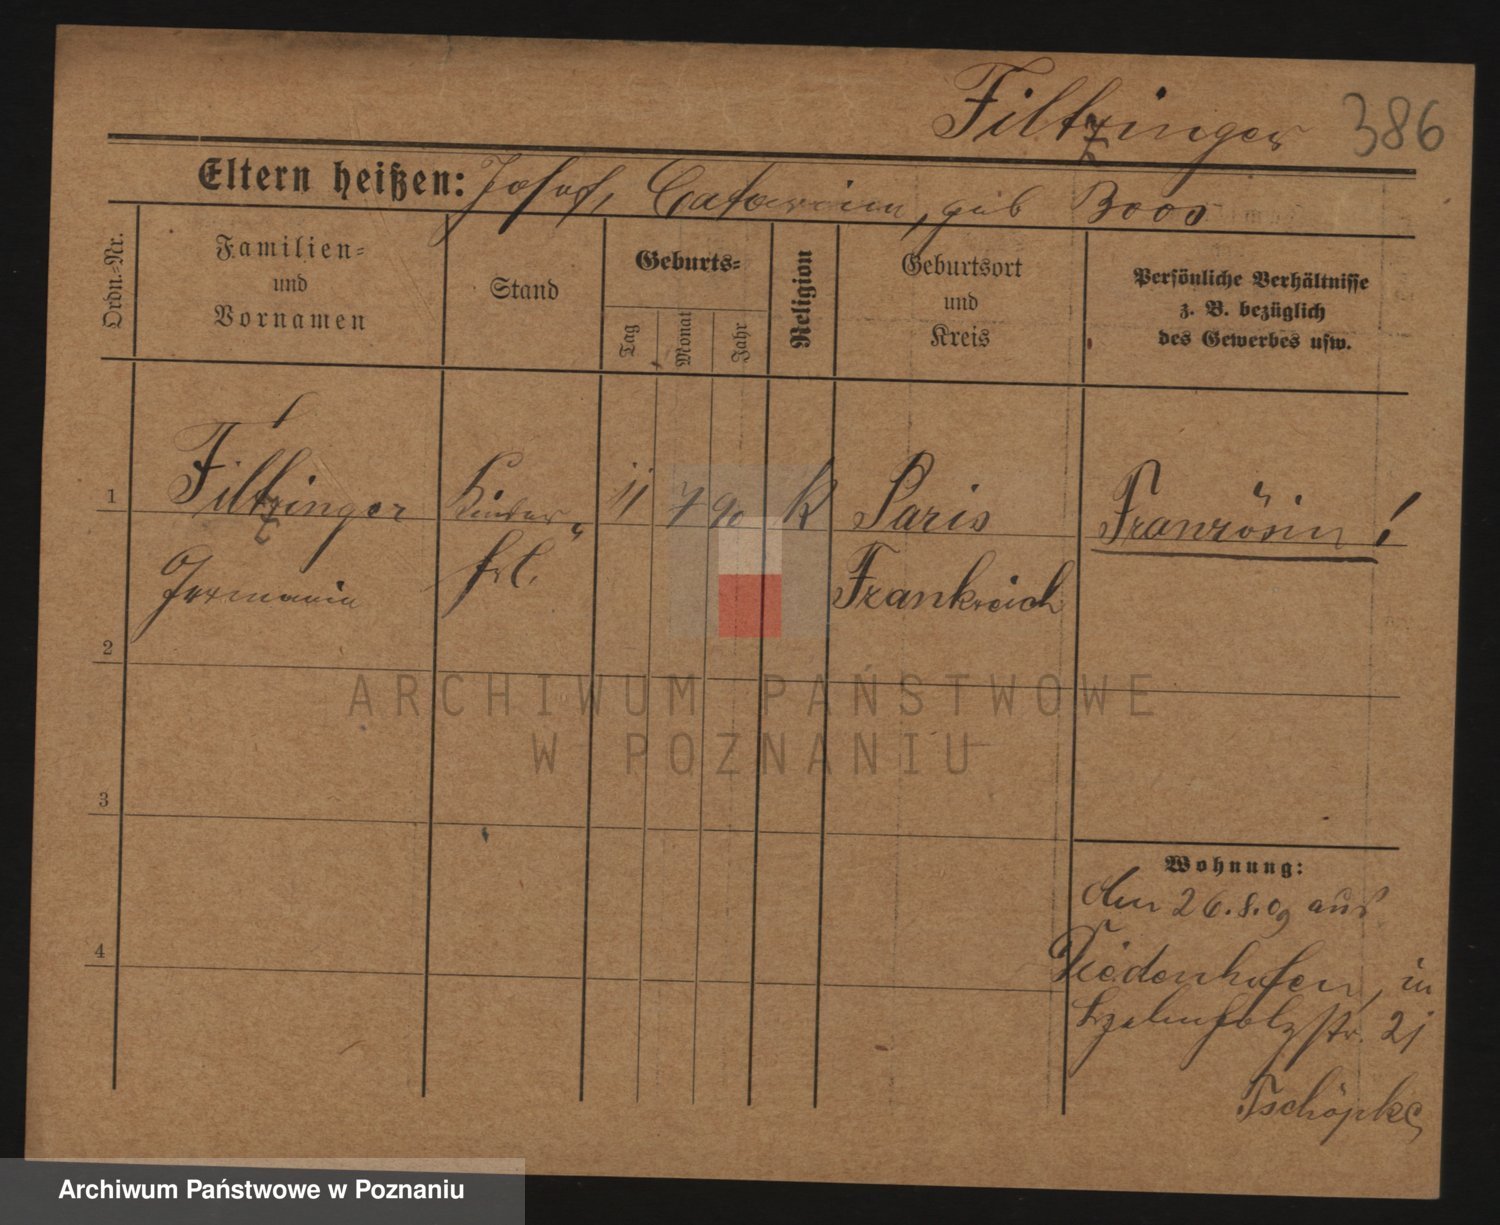 Filtzinger 386
Eltern heißen: Josef, Catarina, geb Boos
Ordn.-Nr.
Familien-
und
Vornamen
Stand
Geburts-
Tag
Monat
Jahr
Religion
Geburtsort
und
Kreis
Persönliche Verhältnisse
z. B. bezüglich
des Gewerbes usw.
1 Filtzinger Kinder- 11 7 90 K Paris Französin!
Germania frl. Frankreich
2
3
4
ARCHIWUM PAŃSTWOWE
W POZNANIU
Wohnung:
Am 26.8.09 aus
Diedenhofen, in
21
Tschöpke
Archiwum Państwowe w Poznaniu